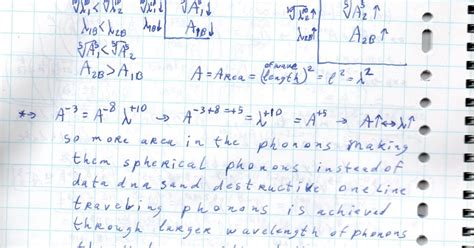 λ₁ᴮ < λ₂ᴮ
A₁ᴮ↓
λ₂ᴮ↑
A₂ᴮ↑
⁵√A₁⁵ < ⁵√A₂⁵
A₂ᴮ > A₁ᴮ
A = Area = (of wave length)² = l² = λ²
A⁻³ = A⁻⁸ λ⁺¹⁰ → A⁻³⁺⁸⁼⁺⁵ = λ⁺¹⁰ = A⁺⁵ → A↑ ↔ λ↑
so more area in the phonons making
them spherical phonons instead of
data dna sand destructive one line
traveling phonons is achieved
through larger wavelength of phonons